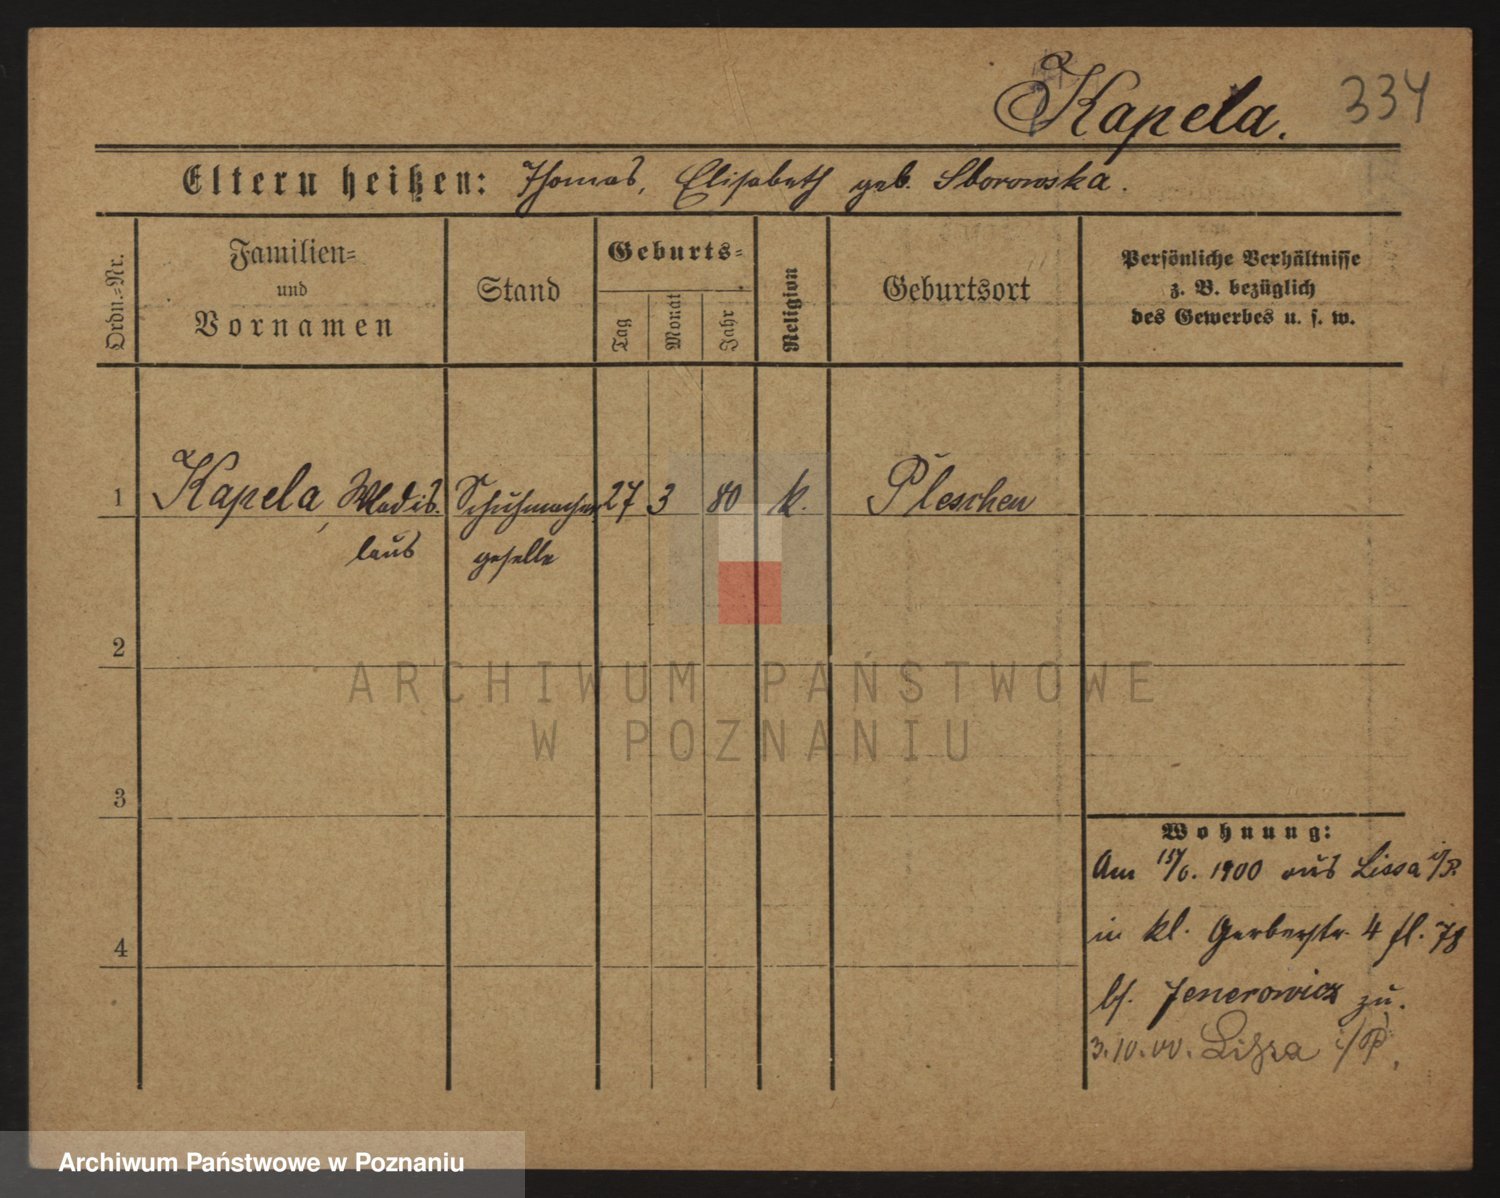 Kapela.
334
Eltern heißen: Thomas, Elisabeth geb. Sborowska.
Ordn.-Nr.
Familien-
und
Vornamen
Stand
Geburts-
Tag
Monat
Jahr
Religion
Geburtsort
Persönliche Verhältnisse
z. B. bezüglich
des Gewerbes u. s. w.
1 Kapela, Wladis- Schuhmacher 27 3 80 k. Pleschen
laus geselle
2
ARCHIWUM PAŃSTWOWE
W POZNANIU
3
Wohnung:
Am 15/6. 1900 aus Lissa i/P.
4
in kl. Gerberstr. 4
bf. Jenerowicz zu.
3.10.00. Lissa i/P.
Archiwum Państwowe w Poznaniu